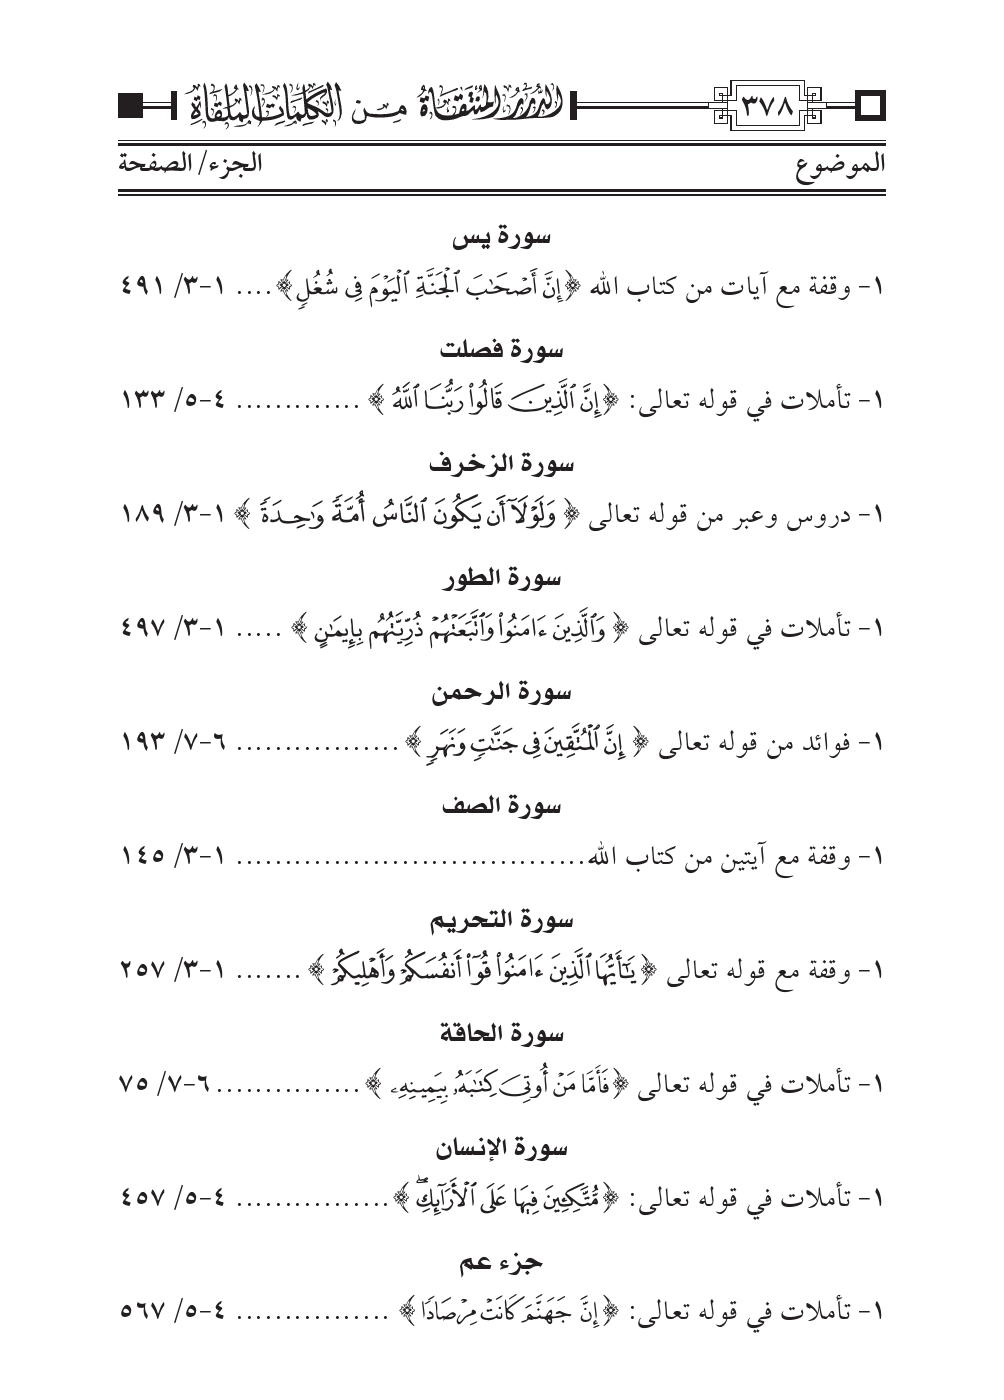 ٣٧٨ الدرر المنتقاة من الكلمات الملقاة
الموضوع الجزء/ الصفحة
سورة يس
١- وقفة مع آيات من كتاب الله ﴿إِنَّ أَصْحَٰبَ ٱلْجَنَّةِ ٱلْيَوْمَ فِى شُغُلٍ﴾ .... ١-٣/ ٤٩١
سورة فصلت
١- تأملات في قوله تعالى: ﴿إِنَّ ٱلَّذِينَ قَالُوا۟ رَبُّنَا ٱللَّهُ ﴾ ............. ٤-٥/ ١٣٣
سورة الزخرف
١- دروس وعبر من قوله تعالى ﴿ وَلَوْلَآ أَن يَكُونَ ٱلنَّاسُ أُمَّةً وَٰحِدَةً ﴾ ١-٣/ ١٨٩
سورة الطور
١- تأملات في قوله تعالى ﴿ وَٱلَّذِينَ ءَامَنُوا۟ وَٱتَّبَعَتْهُمْ ذُرِّيَّتُهُم بِإِيمَٰنٍ ﴾ ..... ١-٣/ ٤٩٧
سورة الرحمن
١- فوائد من قوله تعالى ﴿ إِنَّ ٱلْمُتَّقِينَ فِى جَنَّٰتٍ وَنَهَرٍ ﴾ ................. ٦-٧/ ١٩٣
سورة الصف
١- وقفة مع آيتين من كتاب الله .................................... ١-٣/ ١٤٥
سورة التحريم
١- وقفة مع قوله تعالى ﴿ يَٰٓأَيُّهَا ٱلَّذِينَ ءَامَنُوا۟ قُوٓا۟ أَنفُسَكُمْ وَأَهْلِيكُمْ ﴾ ....... ١-٣/ ٢٥٧
سورة الحاقة
١- تأملات في قوله تعالى ﴿فَأَمَّا مَنْ أُوتِىَ كِتَٰبَهُۥ بِيَمِينِهِۦ ﴾ ............... ٦-٧/ ٧٥
سورة الإنسان
١- تأملات في قوله تعالى: ﴿ مُّتَّكِـِٔينَ فِيهَا عَلَى ٱلْأَرَآئِكِ ۖ ﴾ ................ ٤-٥/ ٤٥٧
جزء عم
١- تأملات في قوله تعالى: ﴿إِنَّ جَهَنَّمَ كَانَتْ مِرْصَادًا ﴾ ................ ٤-٥/ ٥٦٧